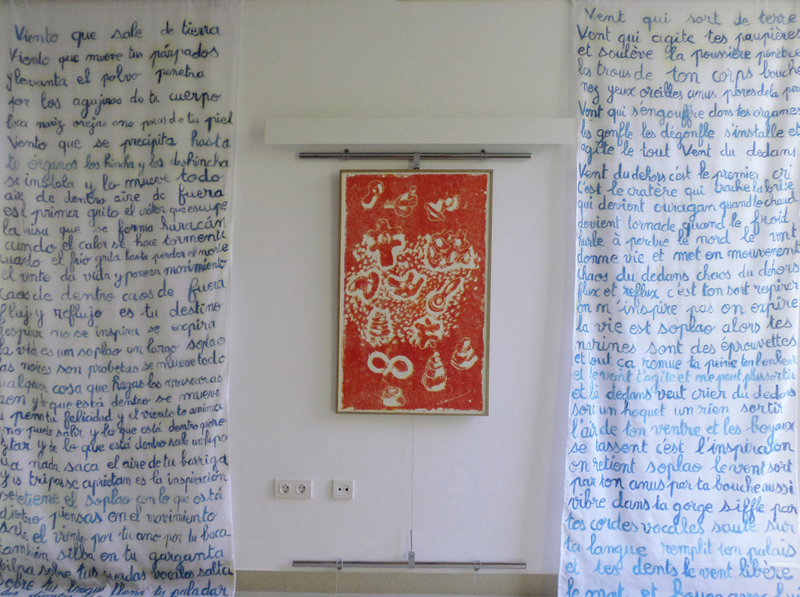 Viento que sale de tierra
Viento que mueve tus párpados
y levanta el polvo penetra
por los agujeros de tu cuerpo
boca nariz orejas ano poros de tu piel
Viento que se precipita hasta
tu órganos los hincha y los deshincha
se instala y lo mueve todo
aire de dentro aire de fuera
es el primer grito el cráter que escupe
la brisa que se forma huracán
cuando el calor se hace tormenta
cuando el frío grita hasta perder el norte
el viento da vida y pone en movimiento
caos de dentro caos de fuera
flujo y reflujo es tu destino
respirar no se inspira se expira
la vida es un soplao un largo soplao
las narices son probetas se mueve todo
cualquier cosa que hagas las mucosas
y que está dentro se mueve
pena tu felicidad y el viento te anima
no puede salir y lo que está dentro quiere
gritar y de lo que está dentro sale un hipo
nada saca el aire de tu barriga
y us tripas se aprietan es la inspiración
se retiene el soplao con lo que está
dentro piensas en el movimiento
sale el viento por tu ano por tu boca
también silba en tu garganta
vibra sobre tus cuerdas vocales salta
sobre tu lengua llena tu paladar
Vent qui sort de terre
Vent qui agite tes paupières
et soulève la poussière pénètre
les trous de ton corps bouche
nez yeux oreilles anus pores de la peau
Vent qui s'engouffre dans tes organes
les gonfle les dégonfle s'installe et
agite le tout Vent du dedans
Vent du dehors c'est le premier cri
c'est le cratère qui crache la brise
qui devient ouragan quand le chaud
devient tornade quand le froid
hurle à perdre le nord le vent
donne vie et met en mouvement
chaos du dedans chaos du dehors
flux et reflux c'est ton sort respirer
on n'inspire pas on expire
la vie est soplao alors tes
narines sont des éprouvettes
et tout ça remue ta peine ton bonheur
et le vent t'agite et ne peut plus sortir
et là dedans veut crier du dedans
sort un hoquet un rien sortir
l'air de ton ventre et les boyaux
se tassent c'est l'inspiration
on retient soplao le vent sort
par ton anus par ta bouche aussi
vibre dans ta gorge siffle par
tes cordes vocales saute sur
ta langue remplit ton palais
et tes dents le vent libère
le mot et